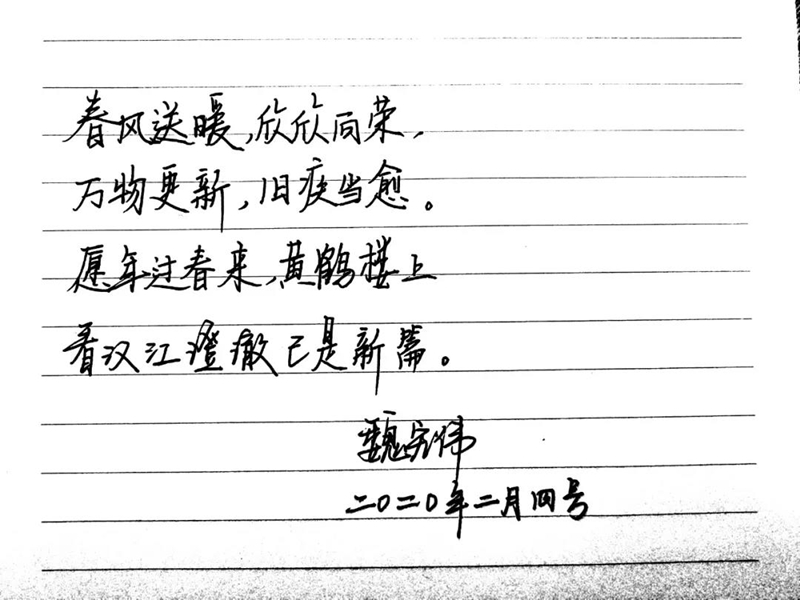 春风送暖,欣欣向荣,
万物更新,旧疾当愈。
愿年过春来,黄鹤楼上
看汉江澄澈已是新篇。
魏宏伟
二〇二〇年二月四号